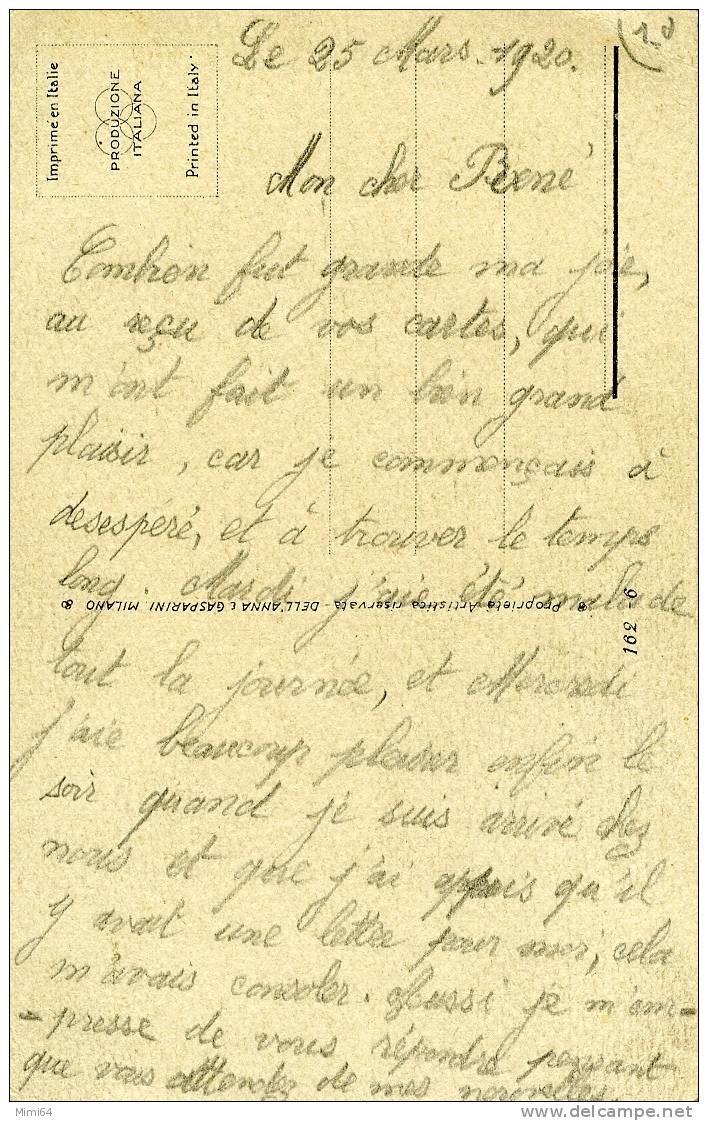 Le 25 Mars. 1920.
(1.0
Imprimé en Italie
PRODUZIONE
ITALIANA
Printed in Italy.
Mon cher René
Combien fut grande ma joie,
au reçu de vos cartes, qui
m'ont fait un bien grand
plaisir, car je commençais à
desespéré, et à trouver le temps
long. Mardi j'aie été malade
Proprietà Artistica riservata - DELL'ANNA & GASPARINI MILANO
162 - 6
tout la journée, et Mercredi
j'aie beaucoup pleurer enfin le
soir quand je suis arrivé chez
nous et que j'ai appris qu'il
y avait une lettre pour moi, cela
m'avais consoler. Aussi je m'em-
-presse de vous répondre pensant
que vous attendez de mes nouvelles.
Mimi64
delcampe.net